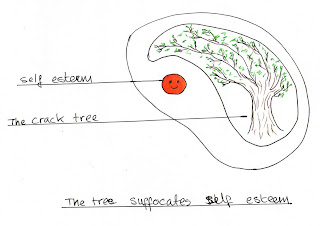 self esteem
The crack tree
The tree suffocates self esteem.